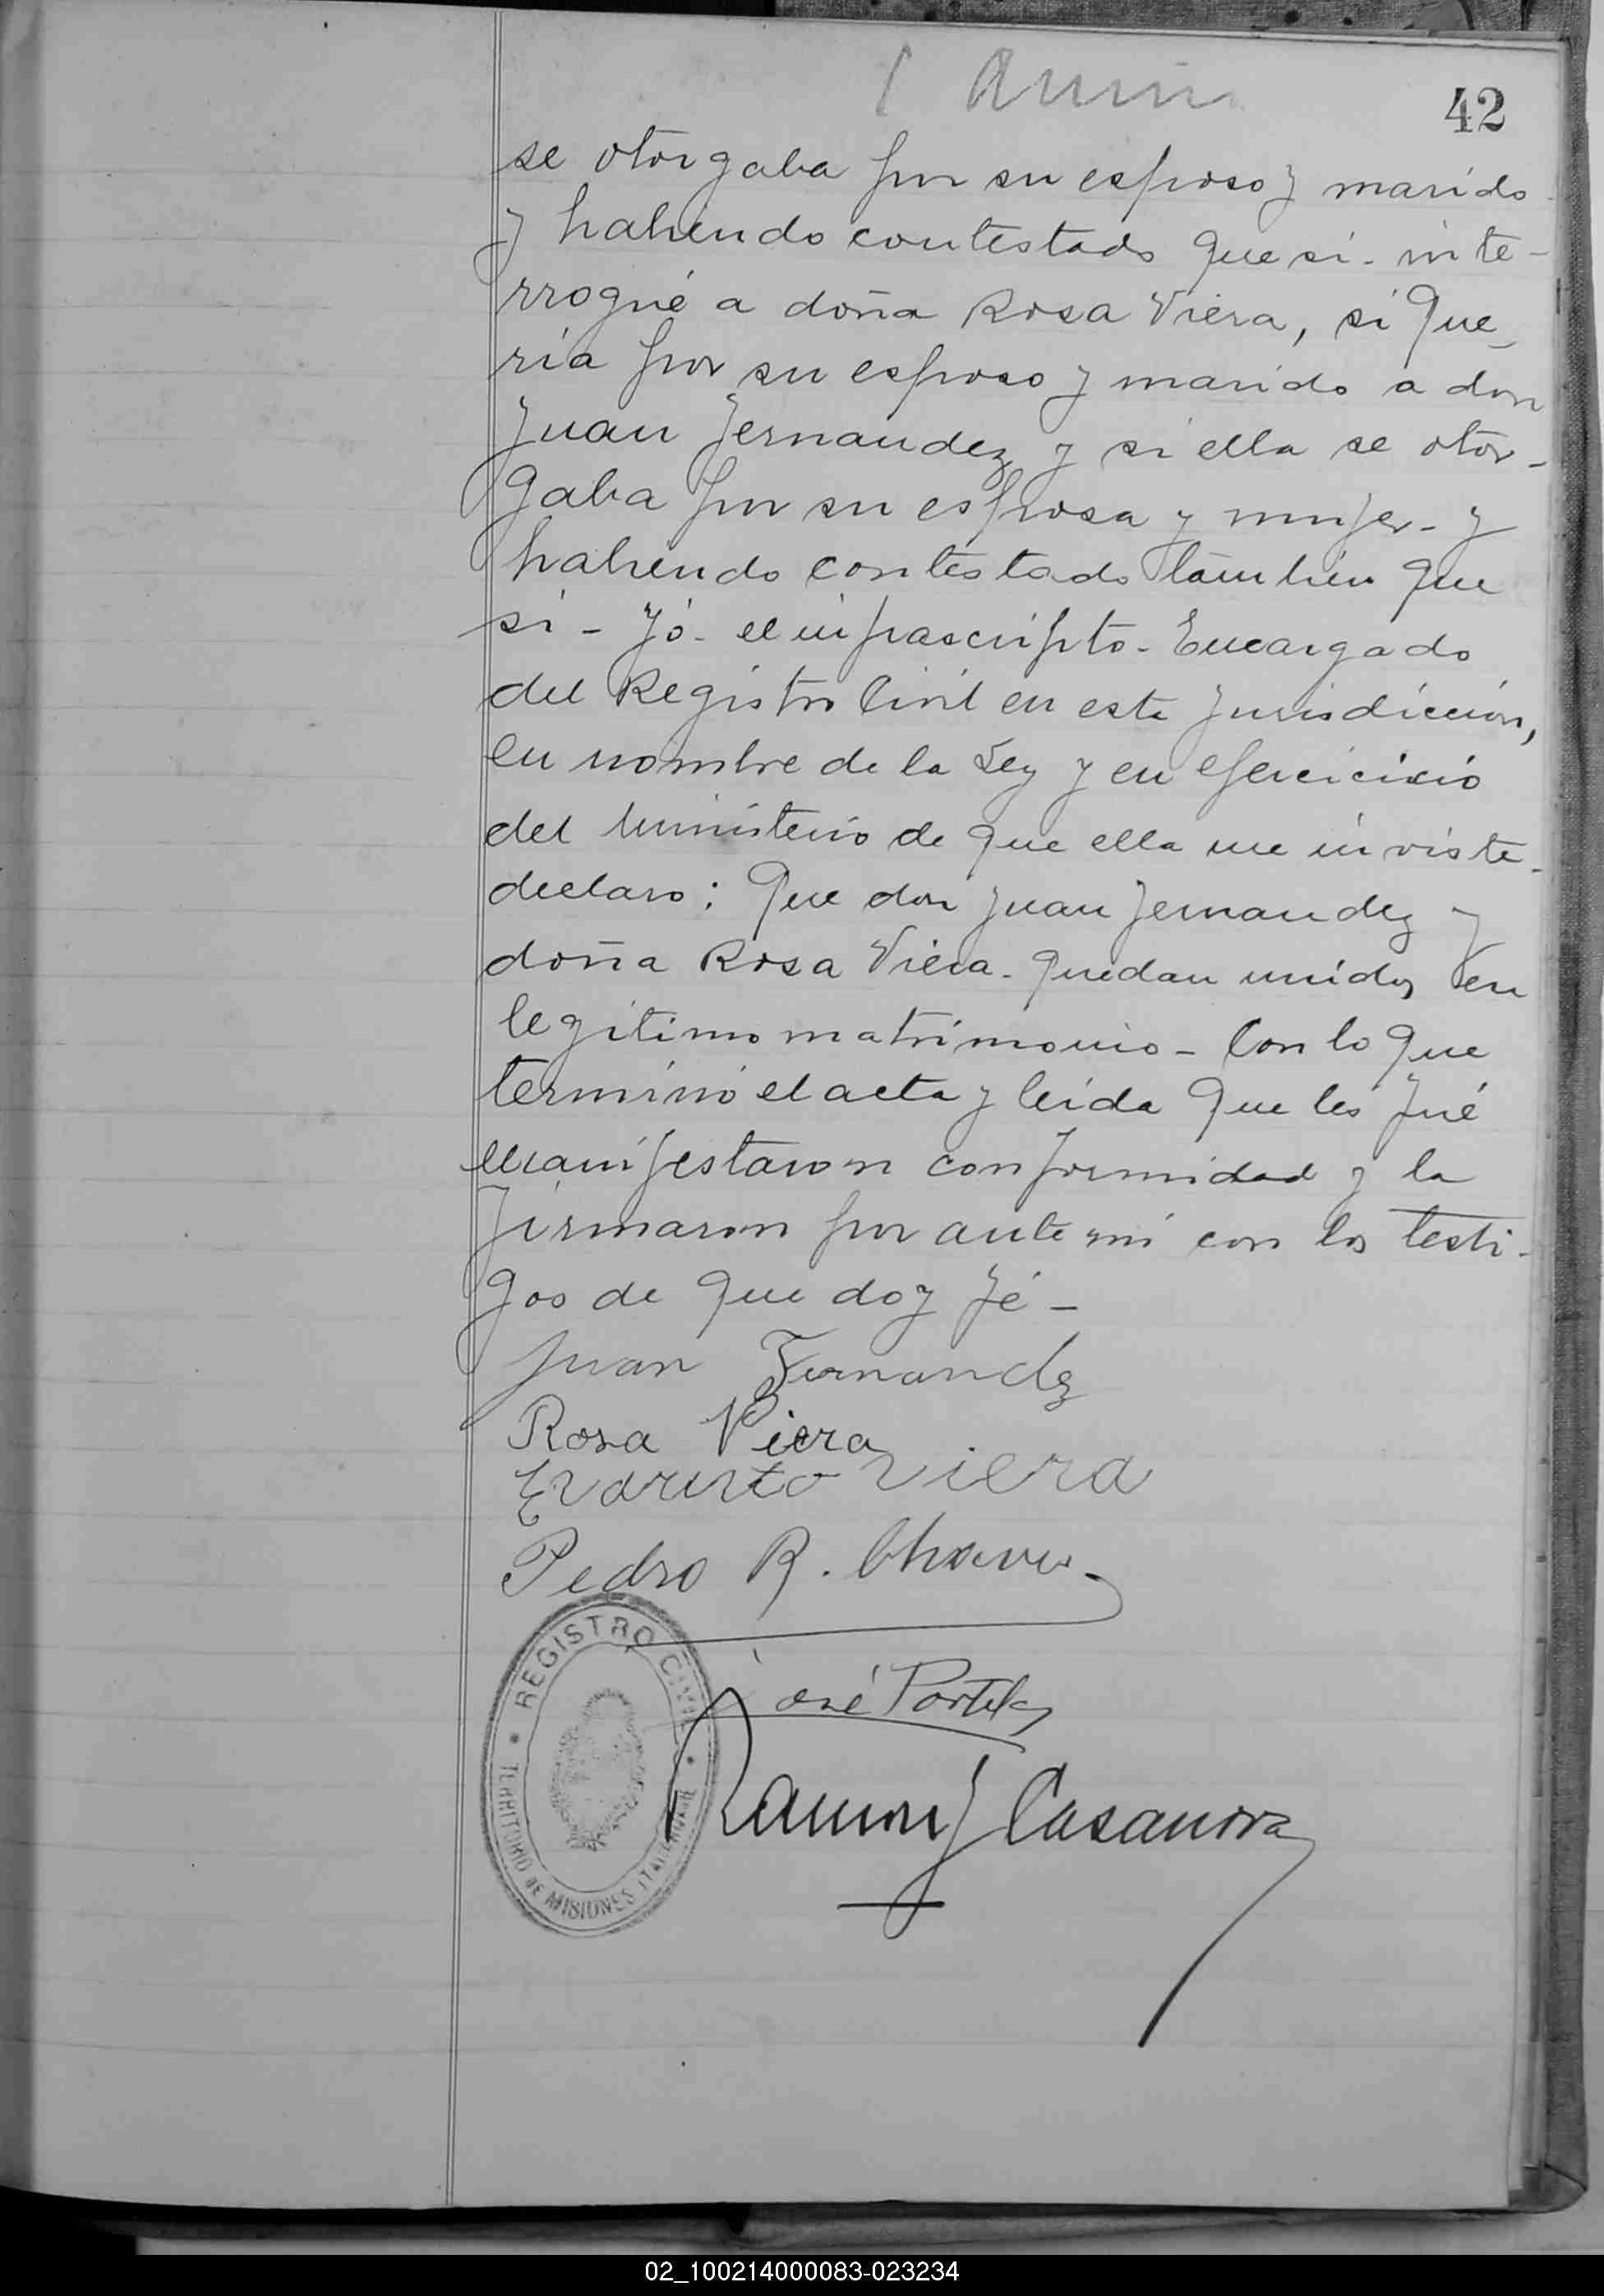 42
se otorgaba por su esposo y marido
y habiendo contestado que si - inte-
rrogué a doña Rosa Viera, si que-
ria por su esposo y marido a don
Juan Fernandez y si ella se otor-
gaba por su esposa y mujer - y
habiendo contestado tambien que
si - Yó - el infrascripto - Encargado
del Registro Civil en esta jurisdicción,
en nombre de la Ley y en ejercicicio
del Ministerio de que ella me inviste -
declaro: Que don Juan Fernandez y
doña Rosa Viera - quedan unidos en
legitimo matrimonio - Con lo que
terminó el acta y leida que les fué
manifestaron conformidad y la
firmaron por ante mi con los testi-
gos de que doy fé -
Juan Fernandez
Rosa Viera
Evaristo Viera
Pedro R. Chaves
REGISTRO CIVIL
José Portela
Ramon J Casanova
TERRITORIO DE MISIONES
02_100214000083-023234